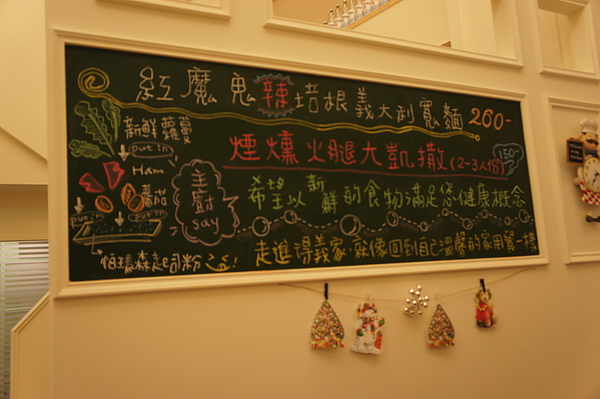 紅魔鬼辣培根義大利寬麵 260-
新鮮蘿蔓
put in
Ham
蕃茄
put in
put in
帕瑪森起司粉
主廚
say
煙燻火腿大凱撒(2-3人份)
150-
希望以新鮮的食物滿足您健康概念
走進得義家就像回到自己溫馨的家用餐一樣